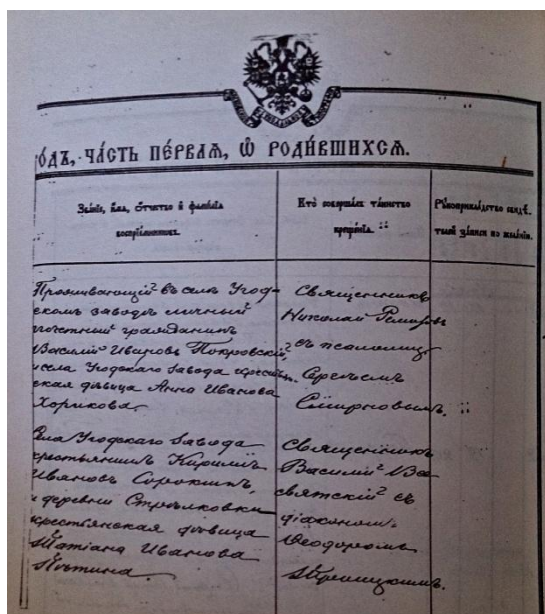 годъ, ча́сть пе́рвая, ѡ҆ роди́вшихсѧ.
Зва́нїе, и҆́мѧ, ѻ҆́тчество и҆ фами́лїѧ
воспрїе́мниковъ.
Кто̀ соверша́лъ та́инство
креще́нїѧ.
Рꙋкоприкла́дство свидѣ́-
телей за́писи по жела́нїю.
Проживающій въ селѣ Угод-
скомъ заводѣ личный
почетный гражданинъ
Василій Ивановъ Покровскій,
и села Угодскаго Завода крестьян-
ская дѣвица Анна Иванова
Хорикова.
Священникъ
Николай
съ псаломщ.
Сергѣемъ
Смирновымъ.
Села Угодскаго Завода
крестьянинъ Кириллъ
Ивановъ Сорокинъ,
и деревни Стрѣлковки
крестьянская дѣвица
Татіана Иванова
Священникъ
Василій Все
святскій съ
діакономъ
Ѳеодоромъ
Троицкимъ.